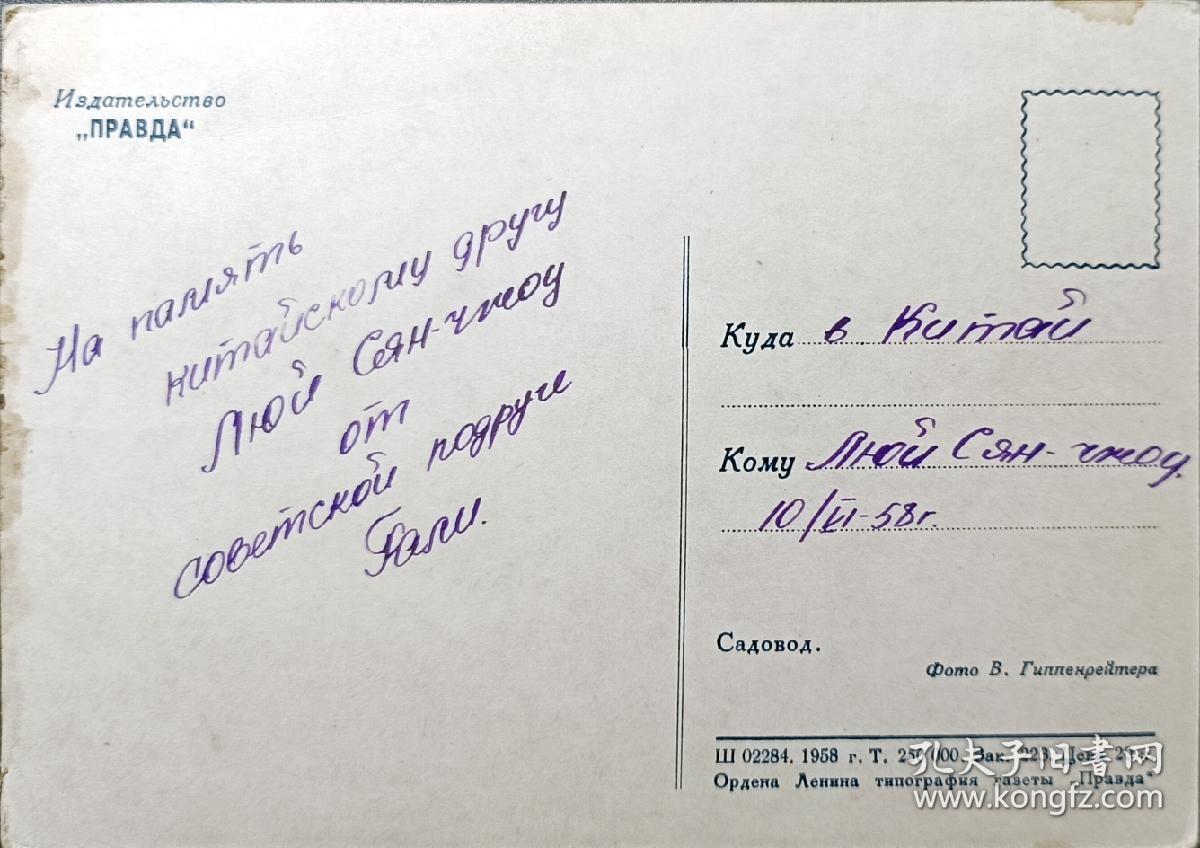 Издательство
„ПРАВДА“
На память
китайскому другу
Люй Сян-чжоу
от
советской подруги
Гали.
Куда в Китай
Кому Люй Сян-чжоу.
10/VI-58г.
Садовод.
Фото В. Гиппенрейтера
Ш 02284. 1958 г. Т. 250 000. Зак.
Ордена Ленина типография газеты „Правда“
孔夫子旧书网
www.kongfz.com